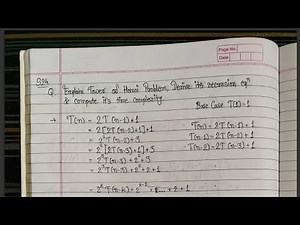 Page No.
Date
Q. Explain Tower of Hanoi Problem, Derive its recursion eqⁿ
& compute it's time complexity.
Base Case T(1) = 1
→ T(n) = 2T(n-1)+1
= 2[2T(n-2)+1]+1 T(n) = 2T(n-1)+1
= 2²T(n-2)+3 T(n-1) = 2T(n-2)+1
= 2²[2T(n-3)+1]+3 T(n-2) = 2T(n-3)+1
= 2³T(n-3)+2²+3
= 2³T(n-3)+2²+2+1